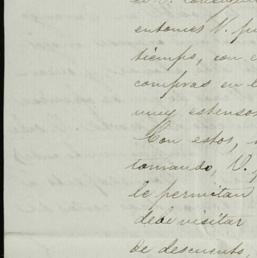 entonces V. pu
tiempo, con e
compras en l
muy estenso
Con estos,
tomando, V. p
le permitan
debe visitar
de descuento,